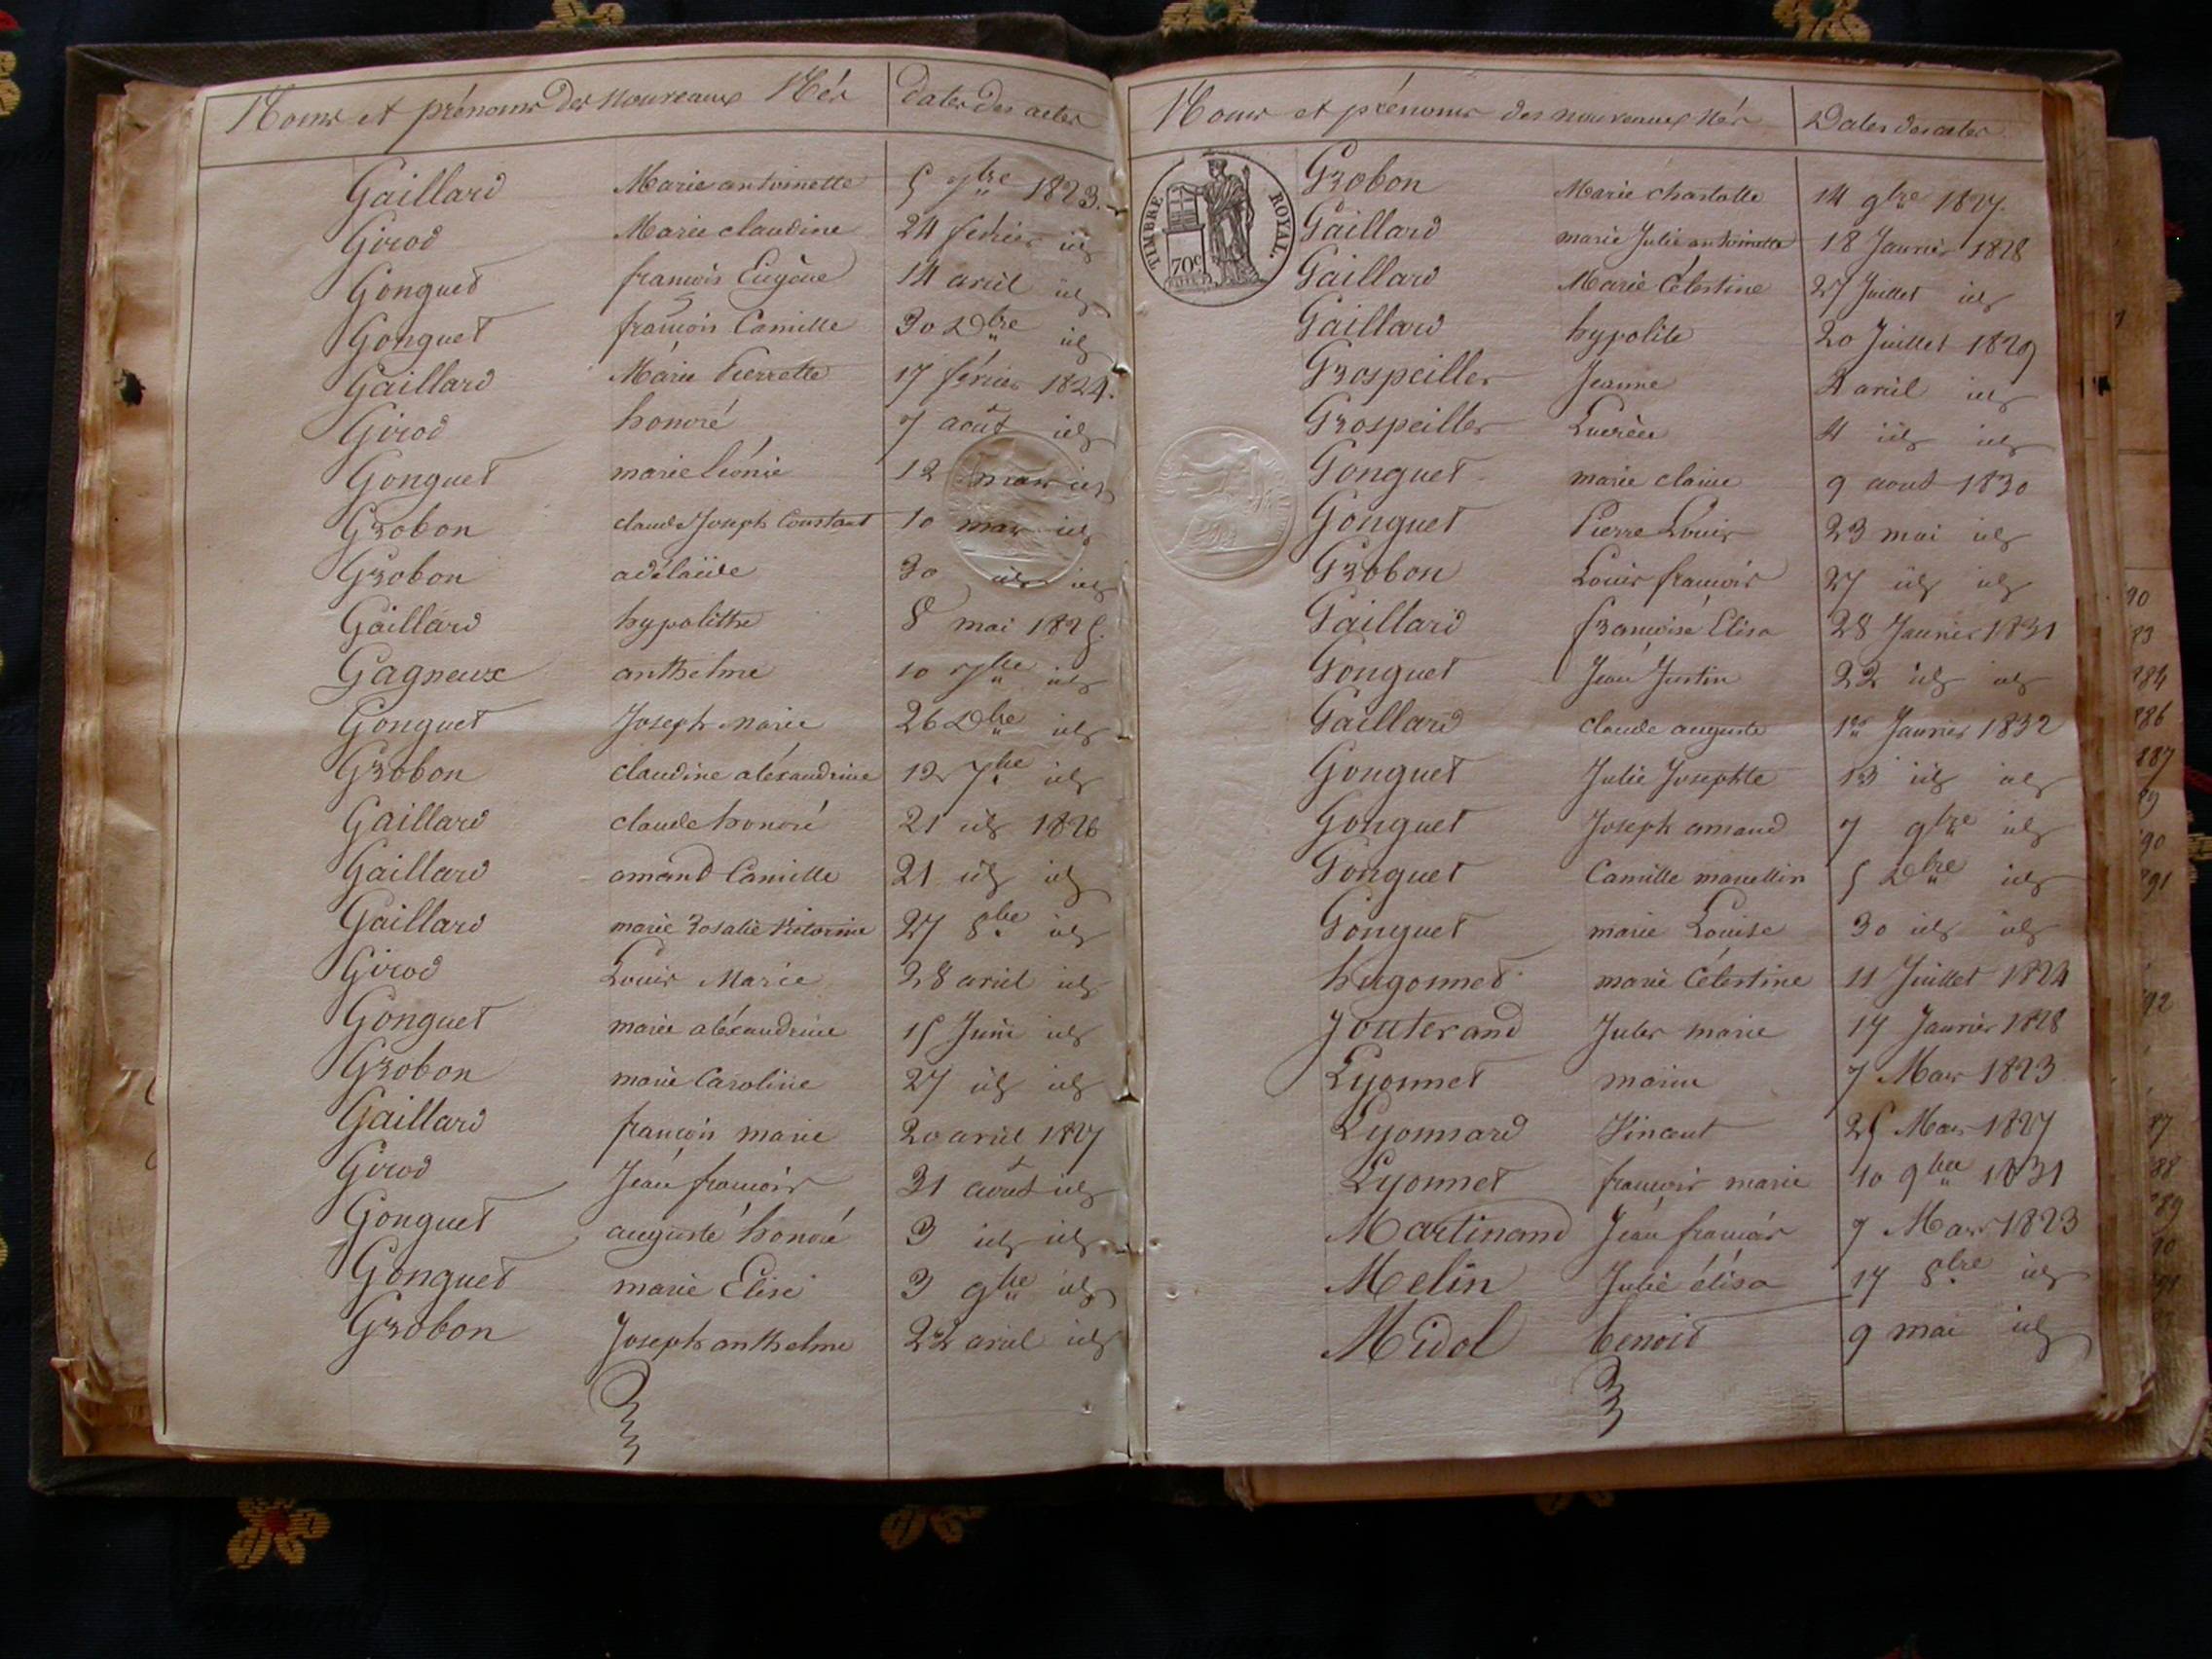 Noms et prénoms des nouveaux Nés dates des actes
Gaillard Marie antoinette 5 7bre 1823.
Girod Marie claudine 24 fevrier id
Gonguet francois Eugène 14 avril id
Gonguet françois Camille 30 Xbre id
Gaillard Marie Pierrette 17 fevrier 1824.
Girod honoré 7 août id
Gonguet marie léonie 12 mars id
Grobon claude Joseph Constant 10 mars id
Grobon adélaïde 30 id id
Gaillard hypolithe 8 mai 1825.
Gagneux anthelme 10 7bre id
Gonguet Joseph Marie 26 Xbre id
Grobon claudine aléxandrine 12 7bre id
Gaillard claude honoré 21 id 1826
Gaillard amand Camille 21 id id
Gaillard marie Rosalie Victorine 27 8bre id
Girod Louis Marie 28 avril id
Gonguet marie aléxandrine 15 Juin id
Grobon marie Caroline 27 id id
Gaillard françois marie 20 avril 1827
Girod Jean françois 31 août id
Gonguet auguste honoré 3 id id
Gonguet marie Elise 3 9bre id
Grobon Joseph anthelme 22 avril id
Noms et prénoms des nouveaux Nés Dates des actes
TIMBRE ROYAL.
70c
Grobon Marie charlotte 14 9bre 1827.
Gaillard marie Julie antoinette 18 Janvier 1828
Gaillard Marie Célestine 27 Juillet id
Gaillard hypolite 20 Juillet 1829
Grospeiller Jeanne 4 avril id
Grospeiller Lucrèce 4 id id
Gonguet marie claire 9 aout 1830
Gonguet Pierre Louis 23 mai id
Grobon Louis françois 27 id id
Gaillard françoise Elisa 28 Janvier 1831
Gonguet Jean Justin 22 id id
Gaillard claude auguste 1er Janvier 1832
Gonguet Julie Josephte 13 id id
Gonguet Joseph amand 7 9bre id
Gonguet Camille marcellin 5 Xbre id
Gonguet marie Louise 30 id id
hugonnet marie Célestine 11 Juillet 1824
Jouterand Jules marie 17 Janvier 1828
Lyonnet marie 7 Mars 1823
Lyonnard Vincent 25 Mars 1827
Lyonnet françois marie 10 9bre 1831
Martinand Jean françois 7 Mars 1823
Melin Julie élisa 17 8bre id
Midol benoit 9 mai id